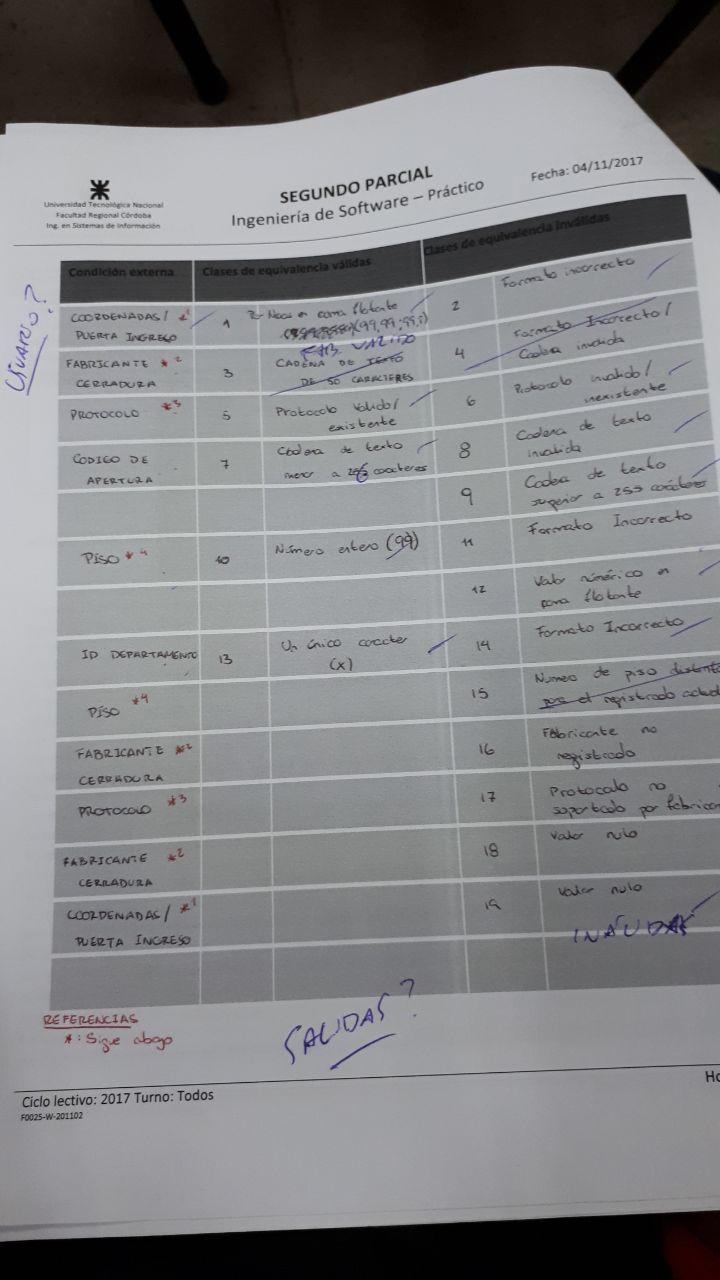 Universidad Tecnológica Nacional
Facultad Regional Córdoba
Ing. en Sistemas de Información
SEGUNDO PARCIAL
Ingeniería de Software – Práctico
Fecha: 04/11/2017
USUARIO?
Condición externa
Clases de equivalencia válidas
Clases de equivalencia inválidas
COORDENADAS/ *1
PUERTA INGRESO
1
en coma flotante
(99,99;99,9)
2
Formato incorrecto
FABRICANTE *2
CERRADURA
3
FAB. VALIDO
CADENA DE TEXTO
DE 50 CARACTERES
4
Formato Incorrecto/
Cadena invalida
PROTOCOLO *3
5
Protocolo valido/
existente
6
Protocolo invalido/
inexistente
CODIGO DE
APERTURA
7
Cadena de texto
menor a caracteres
8
Cadena de texto
invalida
9
Cadea de texto
superior a caracteres
PISO *4
10
Número entero (99)
11
Formato Incorrecto
12
Valor númerico en
coma flotante
ID DEPARTAMENTO
13
Un único caracter
(x)
14
Formato Incorrecto
PISO *4
15
Numero de piso distinto
por el registrado
FABRICANTE *2
CERRADURA
16
Fabricante no
registrado
PROTOCOLO *3
17
Protocolo no
soportado por
FABRICANTE *2
CERRADURA
18
Valor nulo
COORDENADAS/ *1
PUERTA INGRESO
19
Valor nulo
REFERENCIAS
*: Sigue abajo
SALIDAS?
Ciclo lectivo: 2017 Turno: Todos
F0025-W-201102